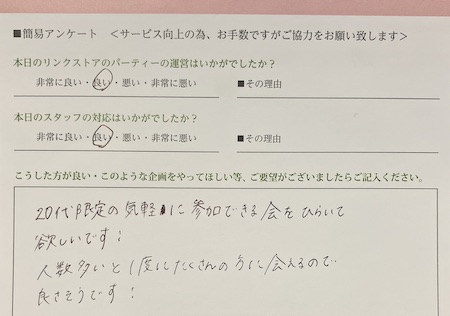 ■簡易アンケート ＜サービス向上の為、お手数ですがご協力をお願い致します＞
本日のリンクストアのパーティーの運営はいかがでしたか？
非常に良い・良い・悪い・非常に悪い ■その理由
本日のスタッフの対応はいかがでしたか？
非常に良い・良い・悪い・非常に悪い ■その理由
こうした方が良い・このような企画をやってほしい等、ご要望がございましたらご記入ください。
20代限定の気軽に参加できる会をひらいて
欲しいです！
人数多いと1度にたくさんの方に会えるので
良さそうです！